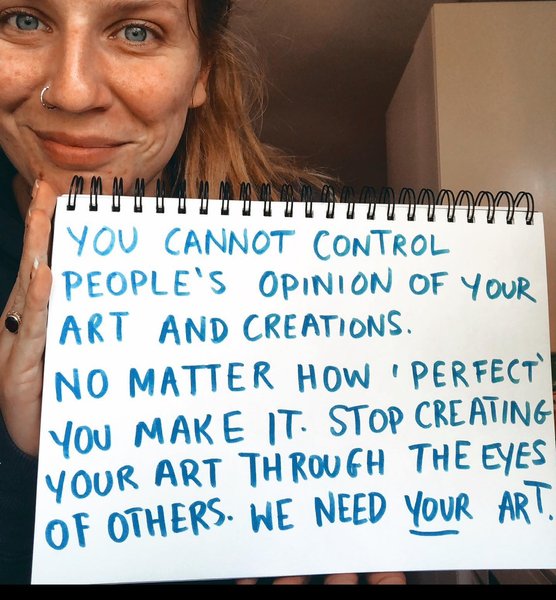 YOU CANNOT CONTROL
PEOPLE'S OPINION OF YOUR
ART AND CREATIONS.
NO MATTER HOW 'PERFECT'
YOU MAKE IT. STOP CREATING
YOUR ART THROUGH THE EYES
OF OTHERS. WE NEED YOUR ART.